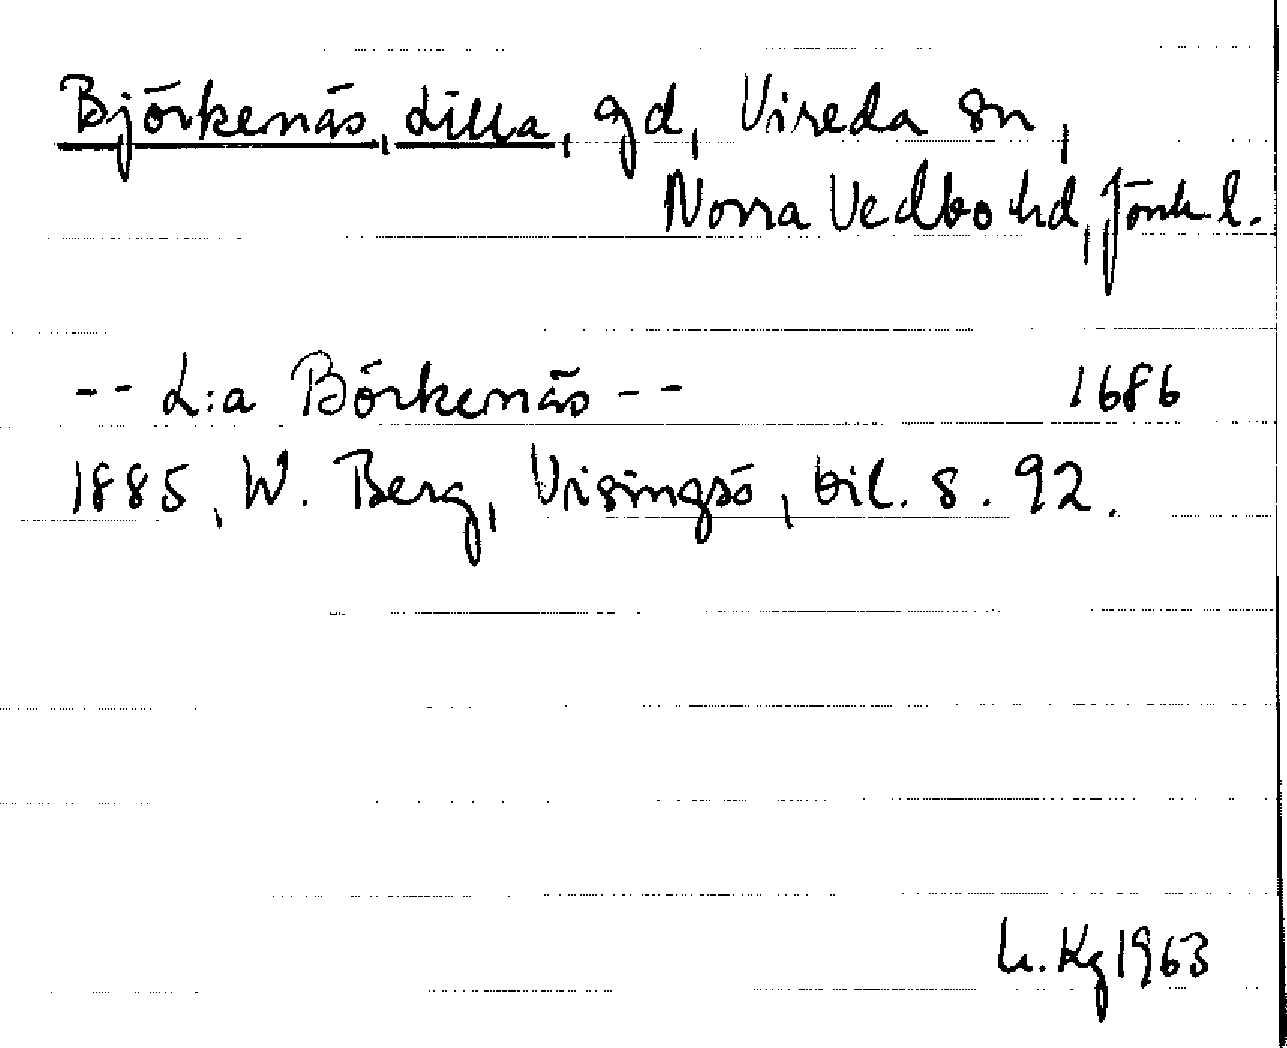 Björkenäs, Lilla, gd, Vireda sn,
Norra Vedbo hd, Jönk l.
-- L:a Börkenäs -- 1686
1885, W. Berg, Visingsö, bil. s. 92.
h. Kg 1963